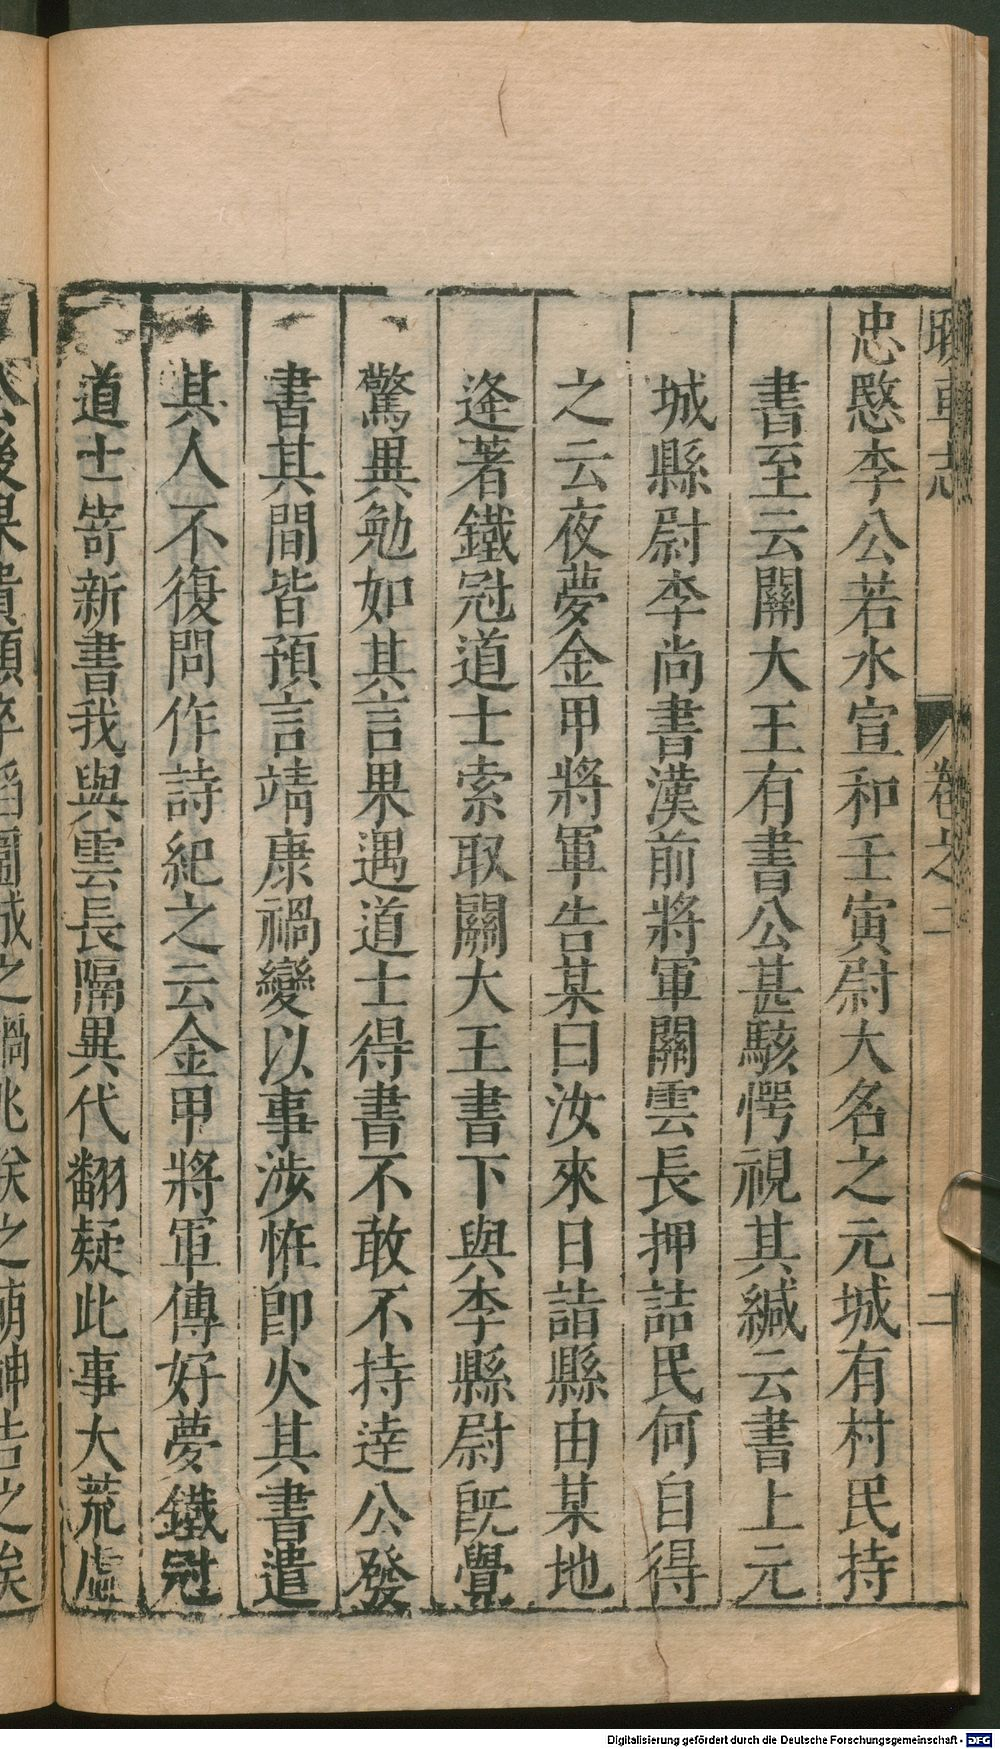 睽車志 卷之二 二
忠愍李公若水宣和壬寅尉大名之元城有村民持
書至云關大王有書公甚駭愕視其緘云書上元
城縣尉李尚書漢前將軍關雲長押詰民何自得
之云夜夢金甲將軍告某曰汝來日詣縣由某地
逢著鐵冠道士索取關大王書下與李縣尉既覺
驚異勉如其言果遇道士得書不敢不持達公發
書其間皆預言靖康禍變以事涉恠即火其書遣
其人不復問作詩紀之云金甲將軍傳好夢鐵冠
道士寄新書我與雲長隔異代翻疑此事大荒虛
公後果貴顯卒蹈圍城之禍兆朕之萌神告之矣
Digitalisierung gefördert durch die Deutsche Forschungsgemeinschaft - DFG